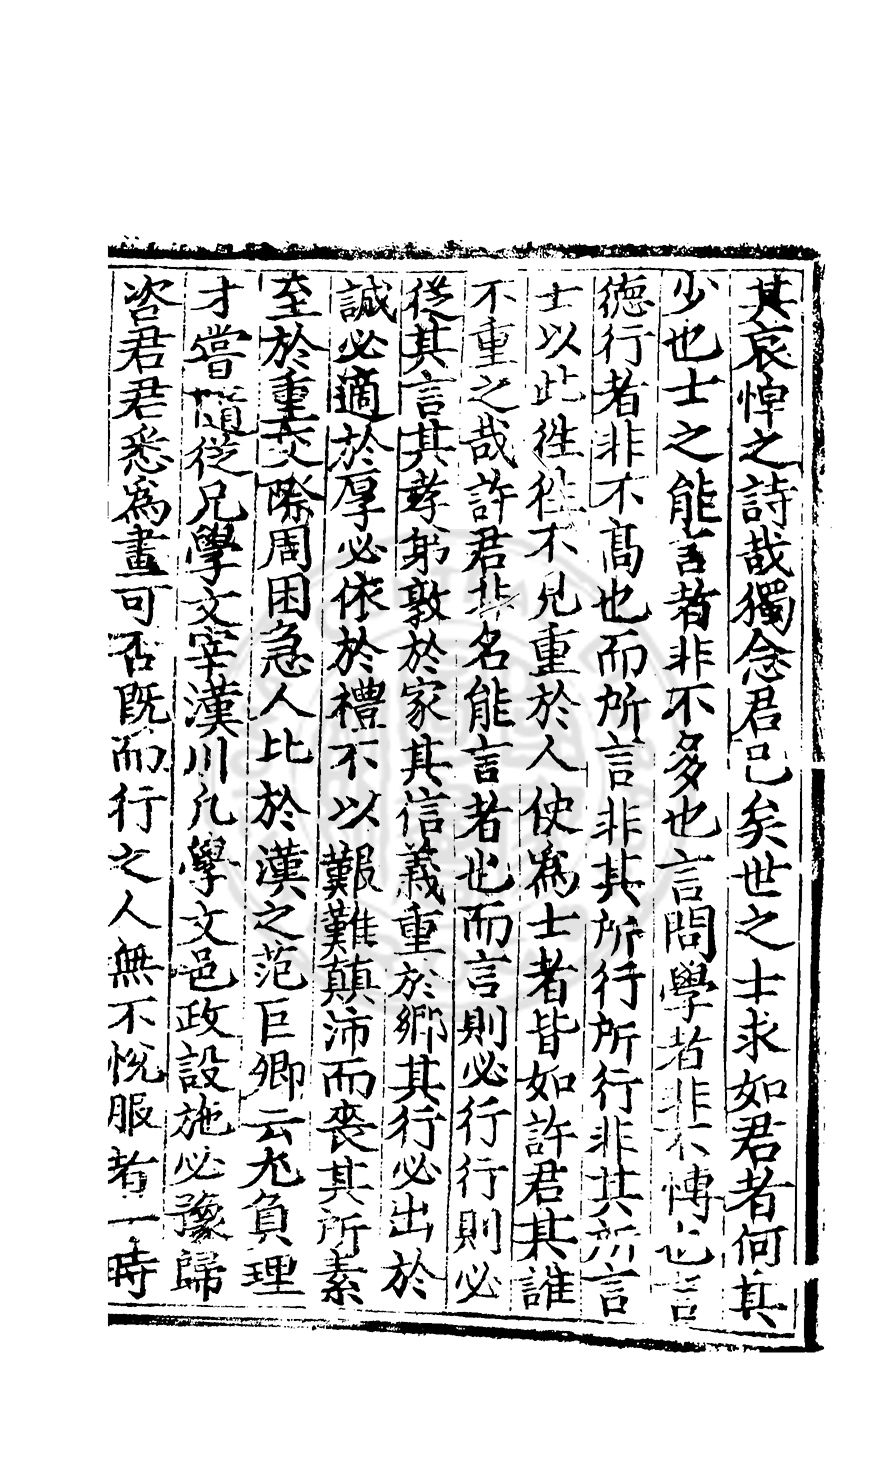 其哀悼之詩哉獨念君已矣世之士求如君者何其
少也士之能言者非不多也言問學者非不博也言
德行者非不高也而所言非其所行所行非其所言
士以此徃徃不見重於人使爲士者皆如許君其誰
不重之哉許君非名能言者也而言則必行行則必
從其言其孝弟敦於家其信義重於鄉其行必出於
誠必適於厚必依於禮不以艱難顛沛而喪其所素
至於重交際周困急人比於漢之范巨卿云尤負理
才嘗隨從兄學文宰漢川凡學文邑政設施必豫歸
咨君君悉爲畫可否既而行之人無不悅服者一時